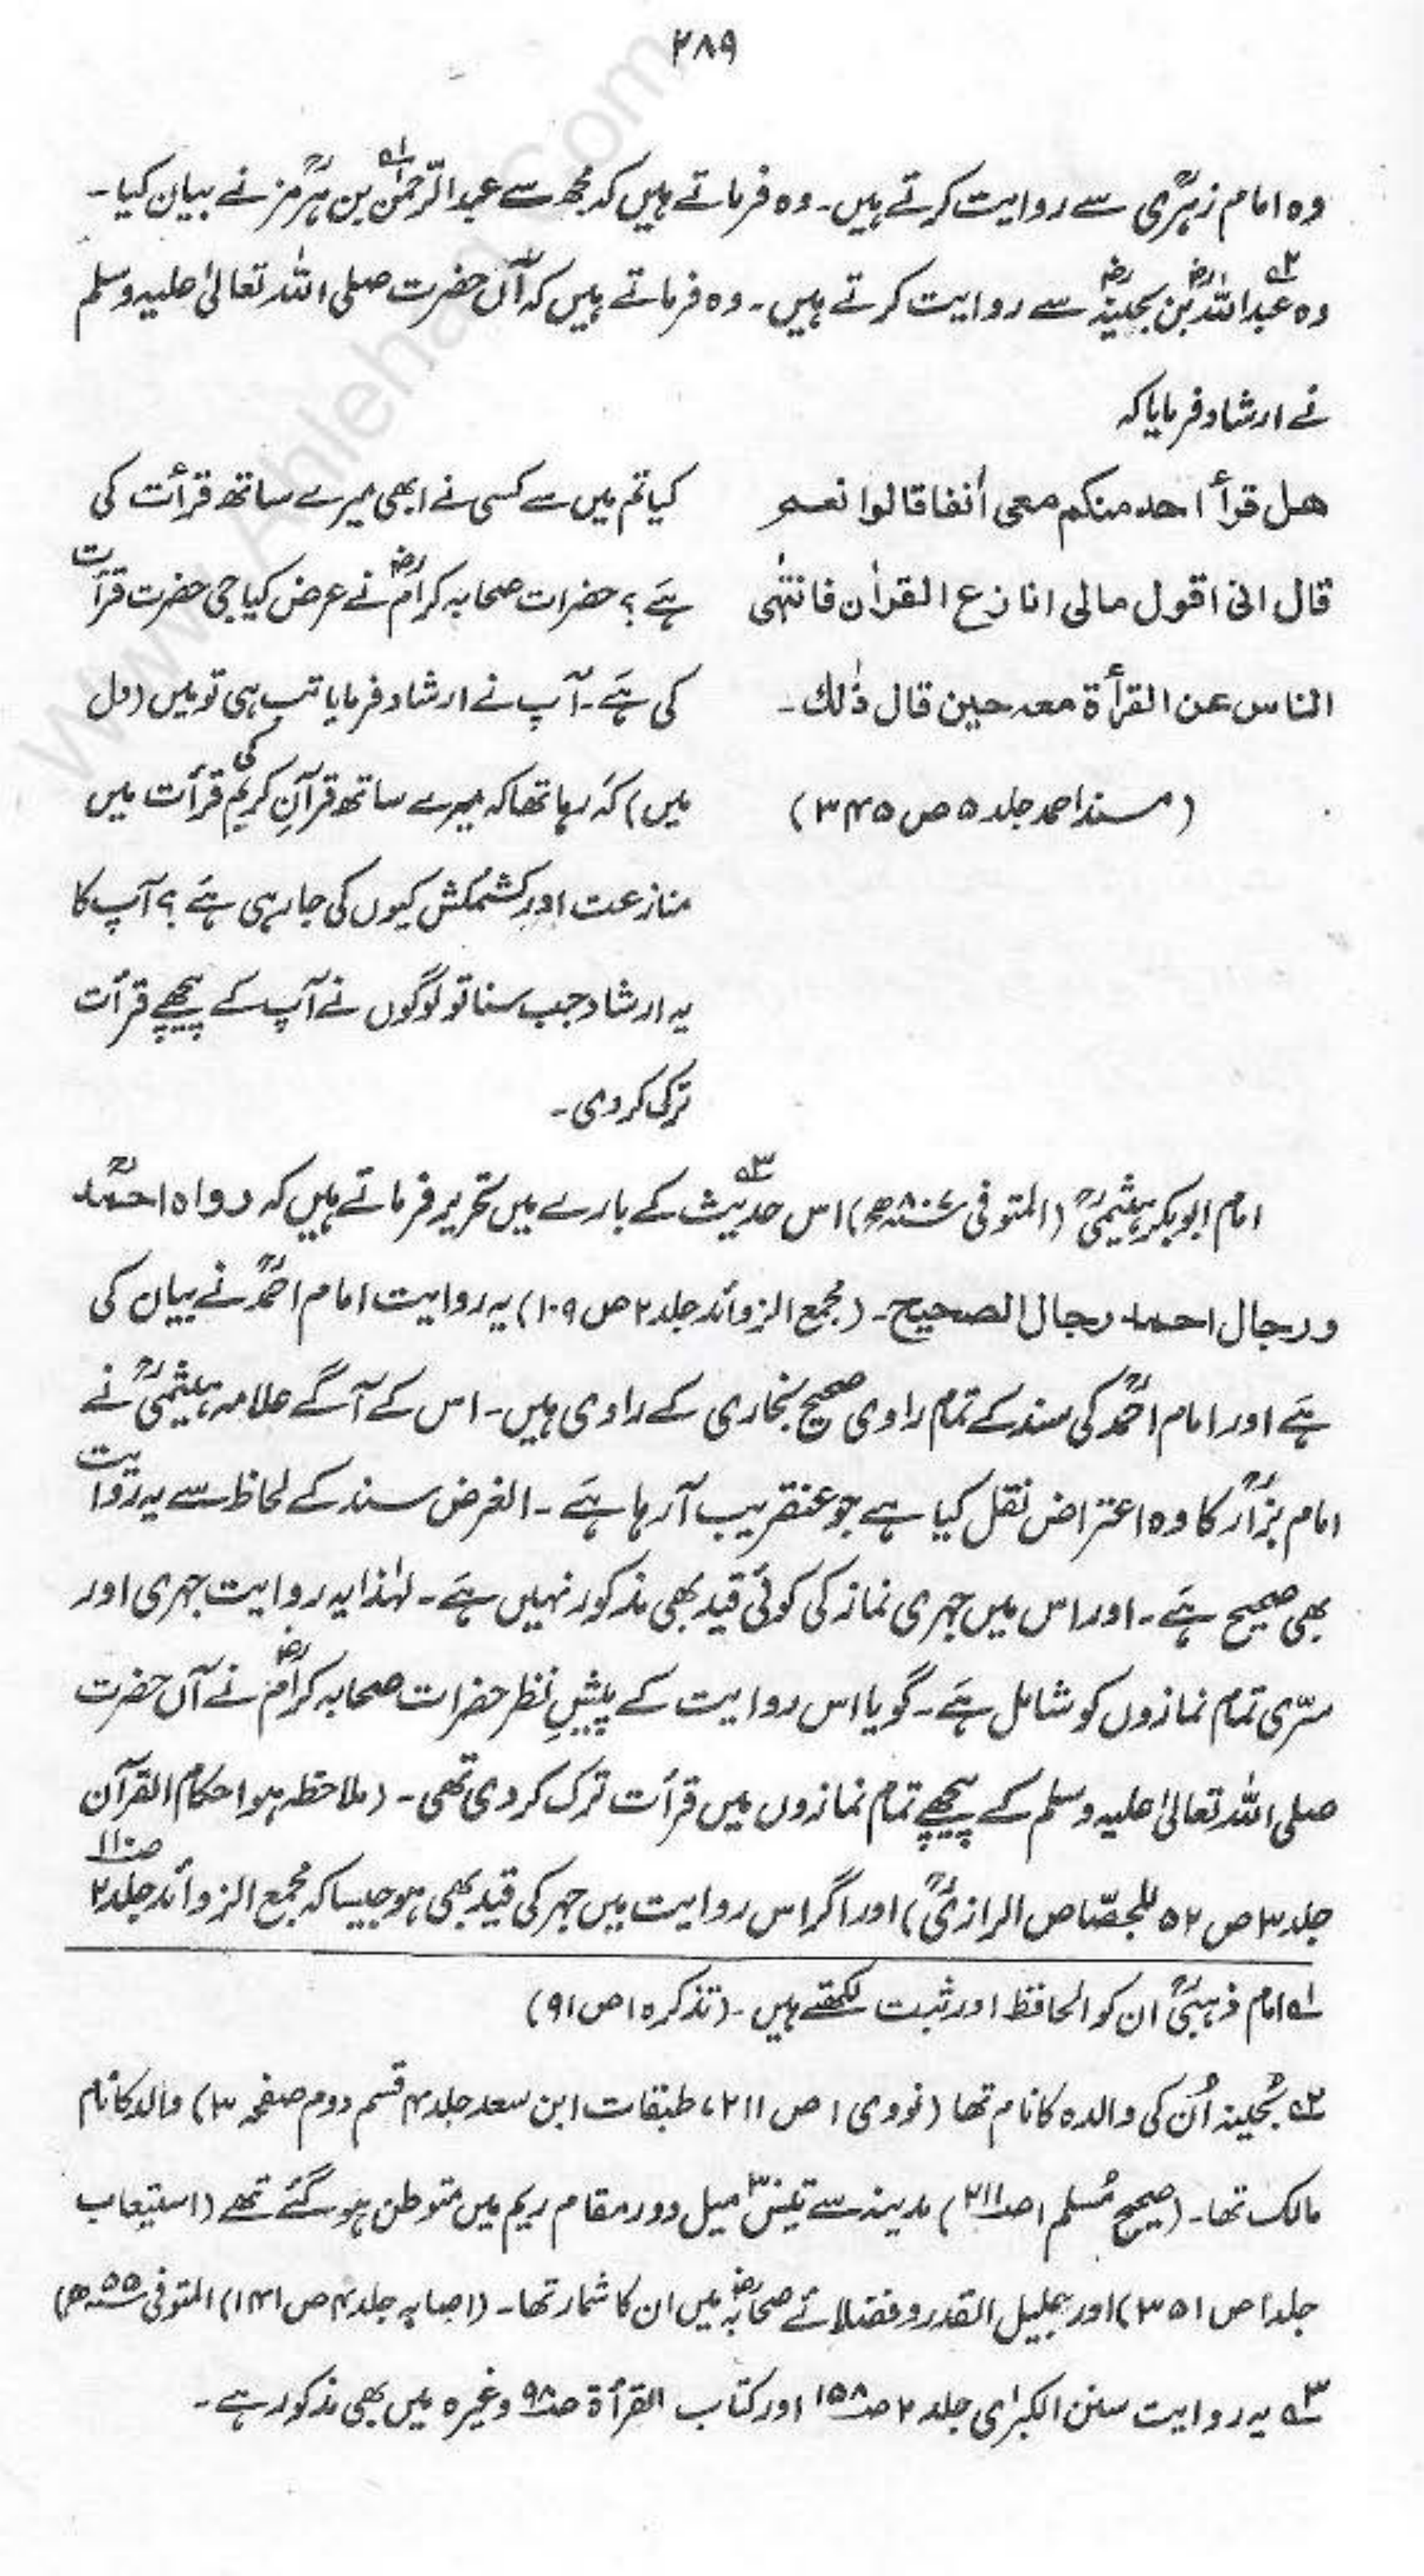 ۲۸۹
وہ امام زہریؒ سے روایت کرتے ہیں۔ وہ فرماتے ہیں کہ مجھ سے عبدالرّحمٰنؒ۱ بن ہرمز نے بیان کیا۔
وہ عبداللہؓ۲ بن بحینہؓ سے روایت کرتے ہیں۔ وہ فرماتے ہیں کہ آں حضرت صلی اللہ تعالیٰ علیہ وسلم
نے ارشاد فرمایا کہ
ھل قرأ احد منکم معی أنفا قالوا نعم
قال انی اقول مالی انازع القراٰن فانتھٰی
الناس عن القرأة معہ حین قال ذٰلك۔
(مسند احمد جلد ۵ ص ۳۴۵)
کیا تم میں سے کسی نے ابھی میرے ساتھ قرأت کی
ہے ؟ حضرات صحابہ کرامؓ نے عرض کیا جی حضرت قرأت
کی ہے۔ آپ نے ارشاد فرمایا تب ہی تو میں (دل
میں) کہہ رہا تھا کہ میرے ساتھ قرآنِ کریم کی قرأت میں
منازعت اور کشمکش کیوں کی جا رہی ہے ؟ آپ کا
یہ ارشاد جب سنا تو لوگوں نے آپ کے پیچھے قرأت
ترک کر دی۔
امام ابوبکر ہیثمیؒ (المتوفی ۸۰۷ھ) اس حدیث۳ کے بارے میں تحریر فرماتے ہیں کہ رواہ احمدؒ
و رجال احمد رجال الصحیح۔ (مجمع الزوائد جلد ۲ ص ۱۰۹) یہ روایت امام احمدؒ نے بیان کی
ہے اور امام احمدؒ کی سند کے تمام راوی صحیح بخاری کے راوی ہیں۔ اس کے آگے علامہ ہیثمیؒ نے
امام بزارؒ کا وہ اعتراض نقل کیا ہے جو عنقریب آ رہا ہے۔ الغرض سند کے لحاظ سے یہ روایت
بھی صحیح ہے۔ اور اس میں جہری نماز کی کوئی قید بھی مذکور نہیں ہے۔ لہٰذا یہ روایت جہری اور
سرّی تمام نمازوں کو شامل ہے۔ گویا اس روایت کے پیشِ نظر حضرات صحابہ کرامؓ نے آں حضرت
صلی اللہ تعالیٰ علیہ وسلم کے پیچھے تمام نمازوں میں قرأت ترک کر دی تھی۔ (ملاحظہ ہو احکام القرآن
جلد ۳ ص ۵۲ للجصّاص الرازیؒ) اور اگر اس روایت میں جہر کی قید بھی ہو جیسا کہ مجمع الزوائد جلد ۲ ص ۱۱۰
۱ امام ذہبیؒ ان کو الحافظ اور ثبت لکھتے ہیں۔ (تذکرہ ۱ ص ۹۱)
۲ بُحینہ اُن کی والدہ کا نام تھا (نووی ۱ ص ۲۱۱، طبقات ابن سعد جلد ۴ قسم دوم صفحہ ۳) والد کا نام
مالک تھا۔ (صحیح مُسلم ۱ ص ۲۱۱) مدینہ سے تیس۳۰ میل دور مقام ریم میں متوطن ہو گئے تھے (استیعاب
جلد ۱ ص ۳۵۱) اور جلیل القدر و فضلائے صحابہؓ میں ان کا شمار تھا۔ (اصابہ جلد ۴ ص ۱۴۱) المتوفی ۵۵ھ)
۳ یہ روایت سنن الکبرٰی جلد ۲ ص ۱۵۸ اور کتاب القرأة ص ۹۸ وغیرہ میں بھی مذکور ہے۔
www.Ahlehaq.Com